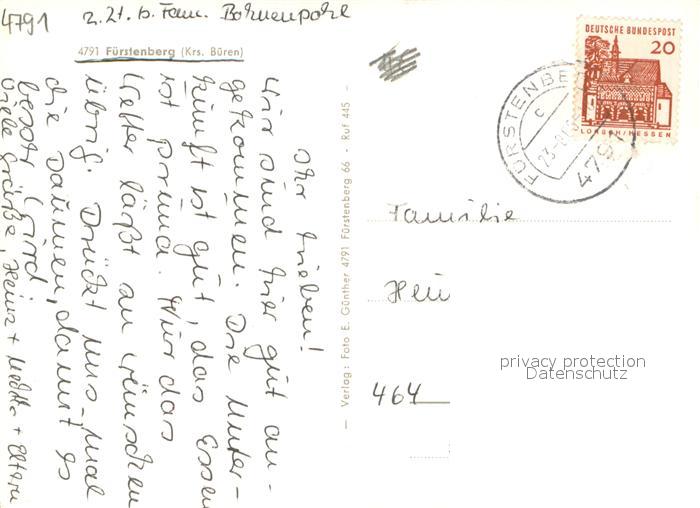 4791 z. Zt. b. Fam.
4791 Fürstenberg (Krs. Büren)
Ihr Lieben!
Wir sind hier gut an-
gekommen. Die Unter-
kunft ist gut, das Essen
ist prima. Nur das
Wetter läßt zu wünschen
übrig. Drückt uns mal
die Daumen, damit es
besser wird.
Viele Grüße, Heinz + + Eltern
— Verlag: Foto E. Günther 4791 Fürstenberg 66 - Ruf 445 -
DEUTSCHE BUNDESPOST
20
LORSCH/HESSEN
FÜRSTENBE
c
23.
479
Familie
Hei
privacy protection
Datenschutz
464